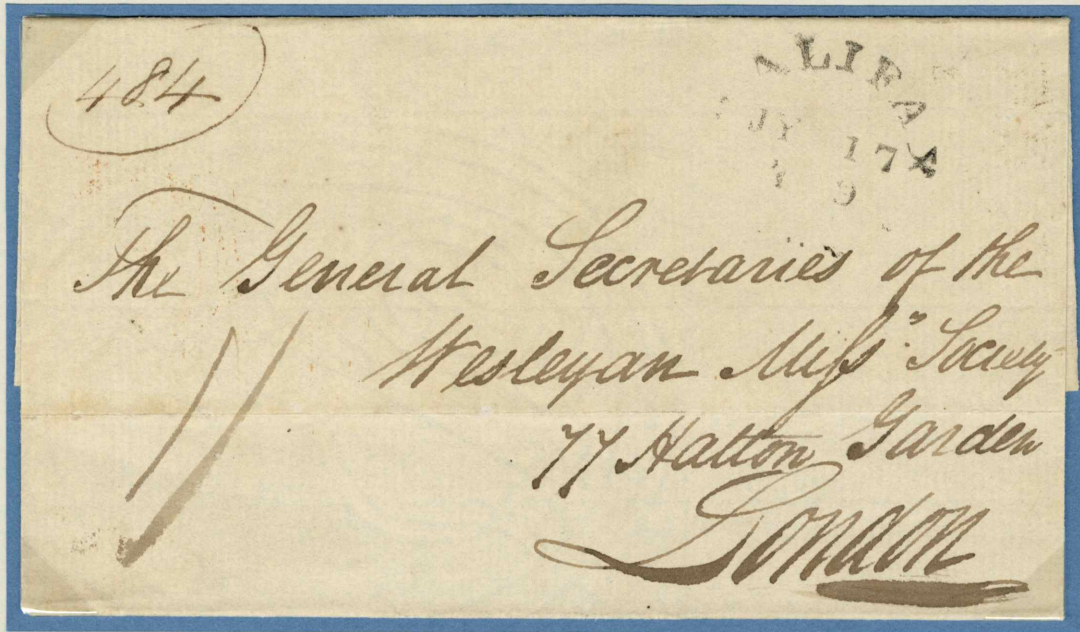 484
ALIFAX
JY 17
9
The General Secretaries of the
Wesleyan Missy. Society
77 Hatton Garden
London
11